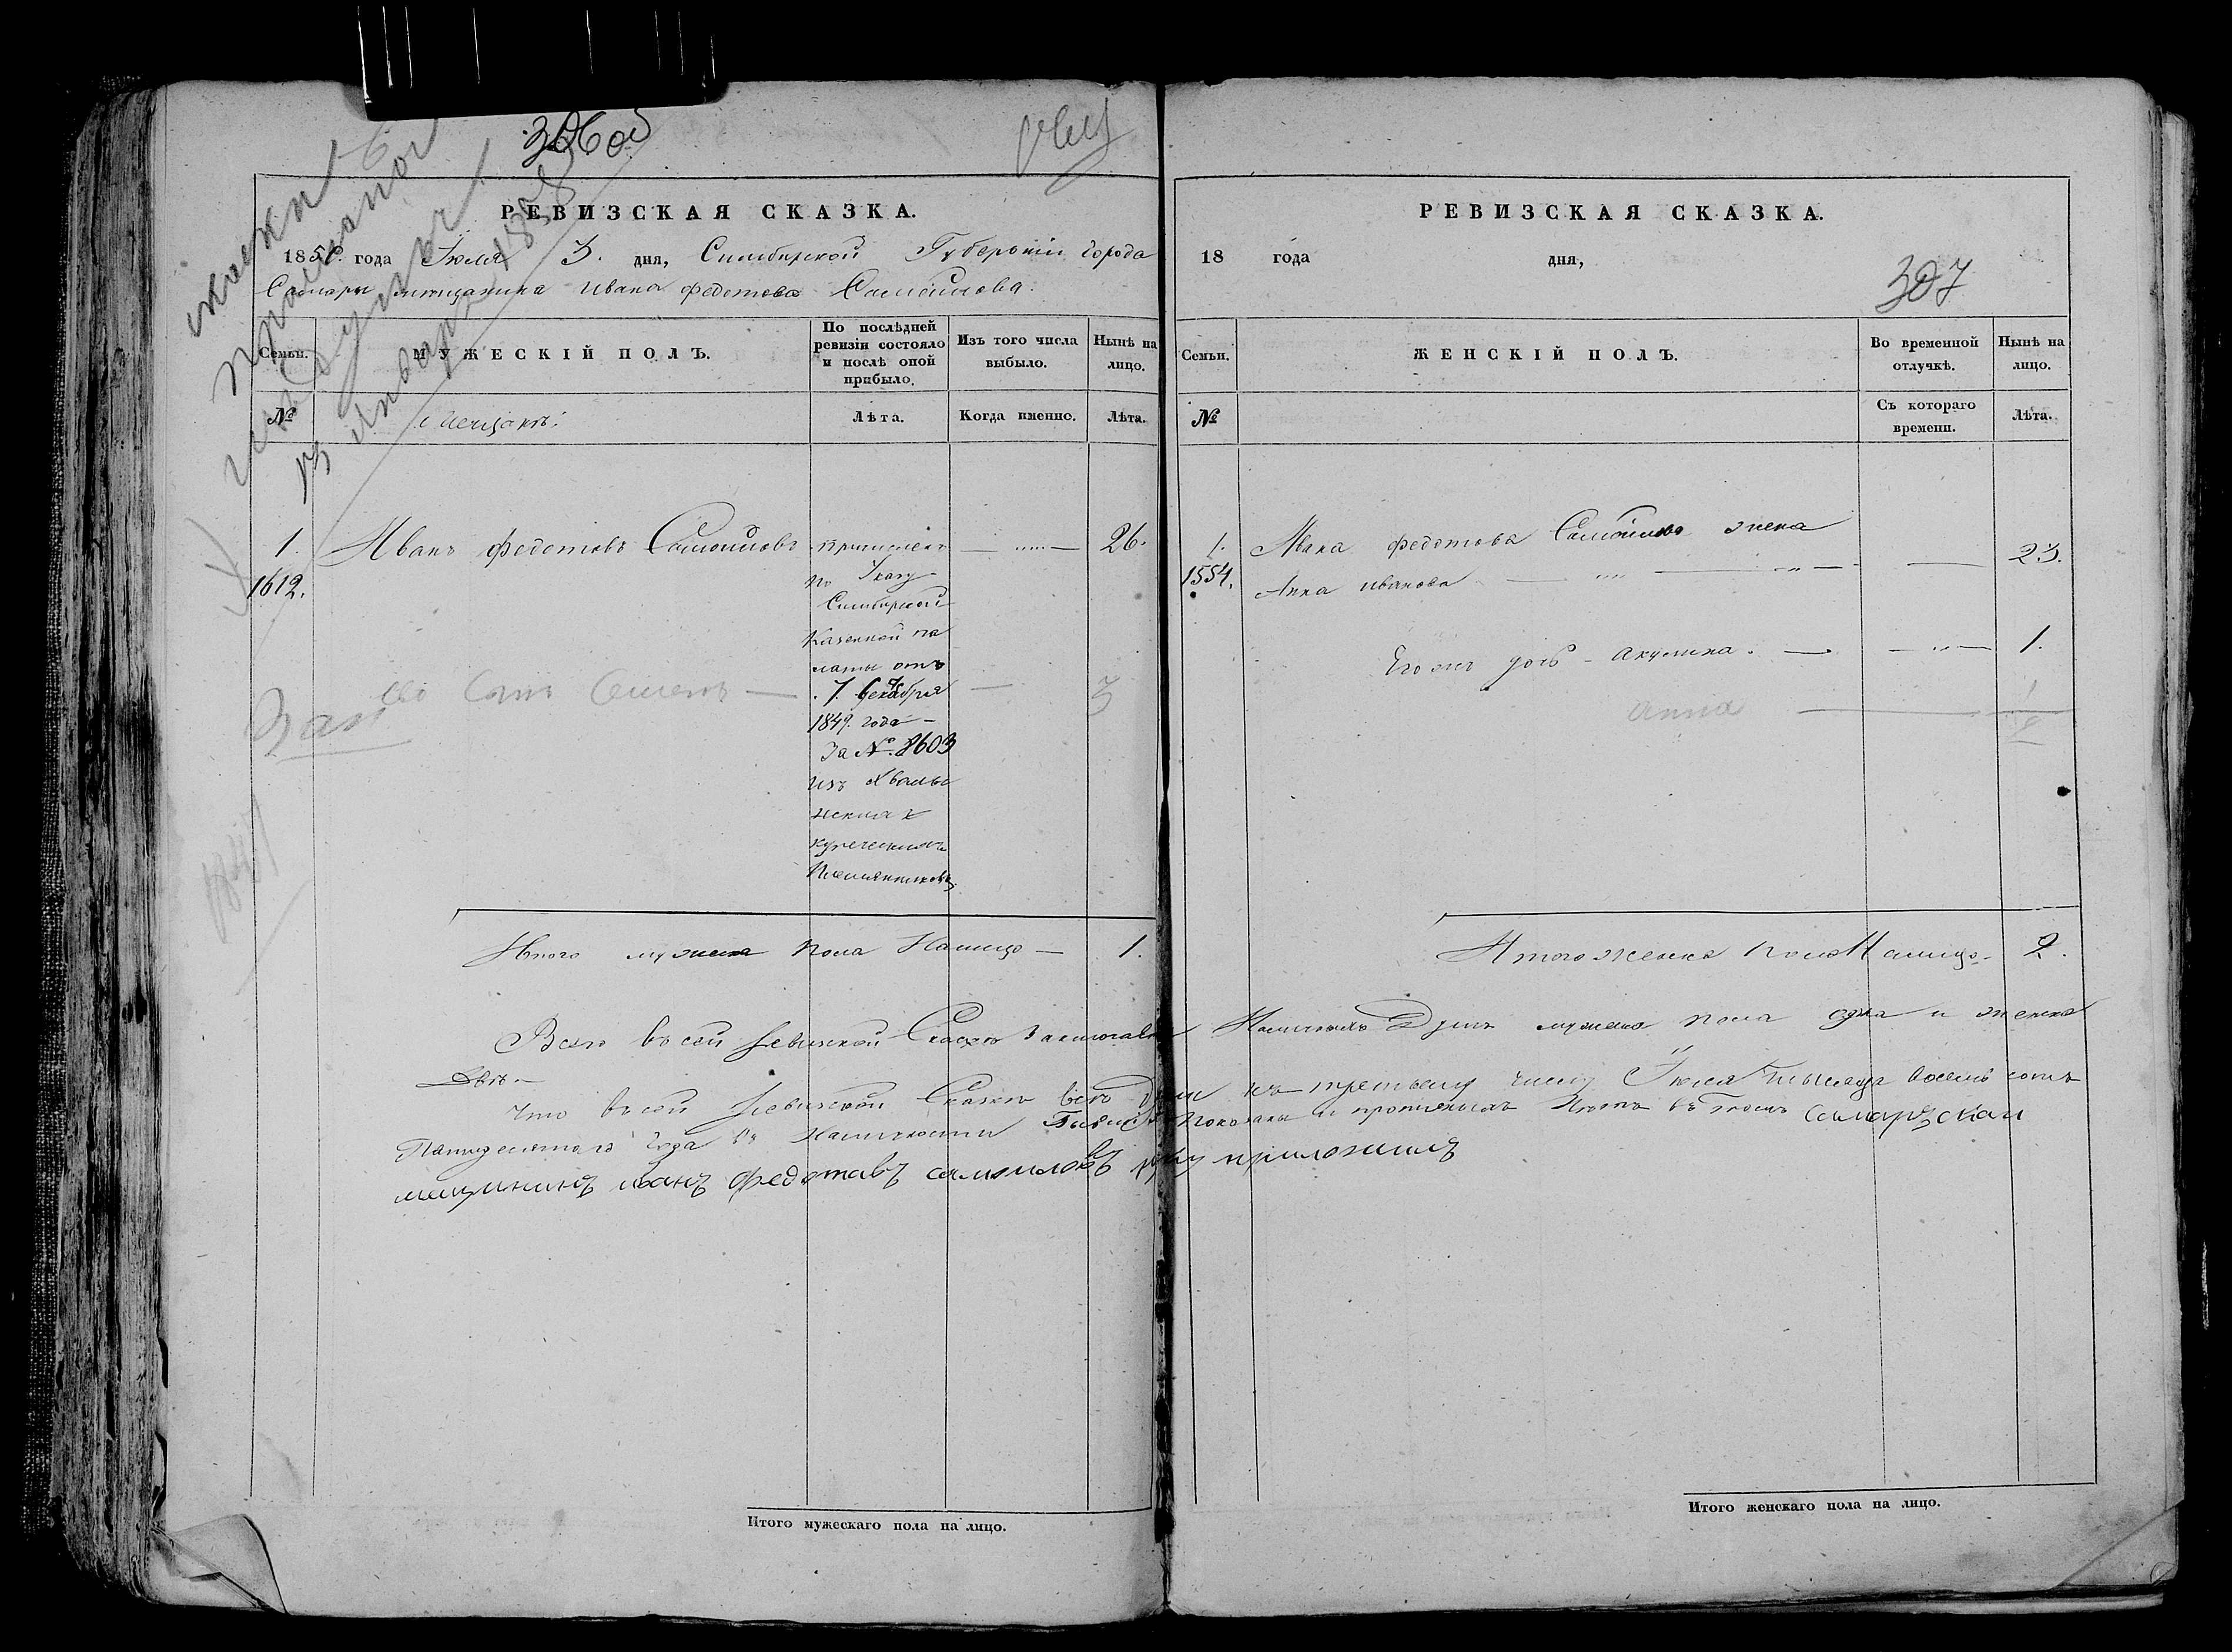 306 об
РЕВИЗСКАЯ СКАЗКА.
1850. года Іюля 3. дня, Симбирской Губерніи города
Самары мещанина Ивана Федотова Самойлова.
Семьи.
МУЖЕСКІЙ ПОЛЪ.
По послѣдней ревизіи состояло и послѣ оной прибыло.
Изъ того числа выбыло.
Нынѣ на лицо.
№
Мещанъ.
Лѣта.
Когда именно.
Лѣта.
1.
1612.
Иванъ Федотовъ Самойловъ
причисленъ
по Указу
Симбирской
Казенной па
латы отъ
7. декабря
1849. года
За №. 8603
изъ Хвалы
нскихъ
купеческихъ
Племянниковъ.
26.
его Сынъ Семенъ
3
Итого мужска пола Налицо — 1.
Итого мужескаго пола на лицо.
РЕВИЗСКАЯ СКАЗКА.
18 года дня,
307
Семьи.
ЖЕНСКІЙ ПОЛЪ.
Во временной отлучкѣ.
Нынѣ на лицо.
№
Съ котораго времени.
Лѣта.
1.
1554.
Ивана Федотова Самойлова жена
Анна Иванова
23.
Его же дочь - Акулина.
1.
Анна
Итого женска пола Налицо - 2.
Всего въ сей Ревизской Сказкѣ заключается Наличныхъ Душъ мужска пола одна и женска
Двѣ.
Что въ сей Ревизской Сказкѣ всѣ Души къ третьему числу Іюля тысяща восемь сотъ
Пятидесятого года въ Наличности Бывшія Показаны и прописныхъ Нѣтъ въ томъ самарзскаи
мещининъ иванъ федотавъ самоиловъ руку приложилъ
Итого женскаго пола на лицо.